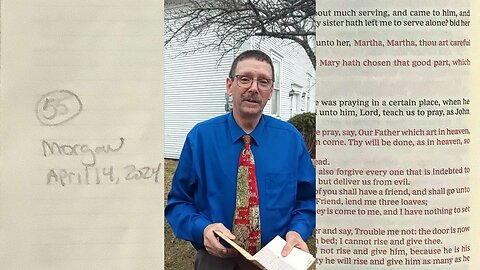 55
Morgan
April 14, 2024
out much serving, and came to him, and
y sister hath left me to serve alone? bid her
unto her, Martha, Martha, thou art careful
Mary hath chosen that good part, which
was praying in a certain place, when he
unto him, Lord, teach us to pray, as John
pray, say, Our Father which art in heaven,
m come. Thy will be done, as in heaven, so
ead.
also forgive every one that is indebted to
but deliver us from evil.
of you shall have a friend, and shall go unto
Friend, lend me three loaves;
ey is come to me, and I have nothing to set
er and say, Trouble me not: the door is now
bed; I cannot rise and give thee.
not rise and give him, because he is his
ty he will rise and give him as many as he